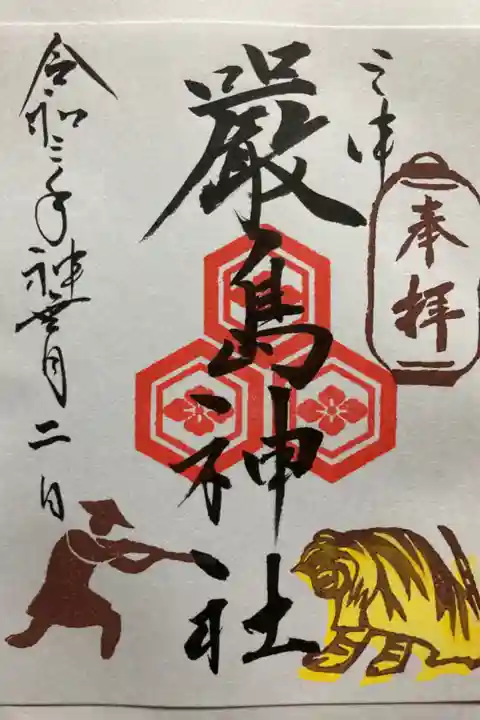 奉拝
三津
嚴島神社
令和三年神無月二日